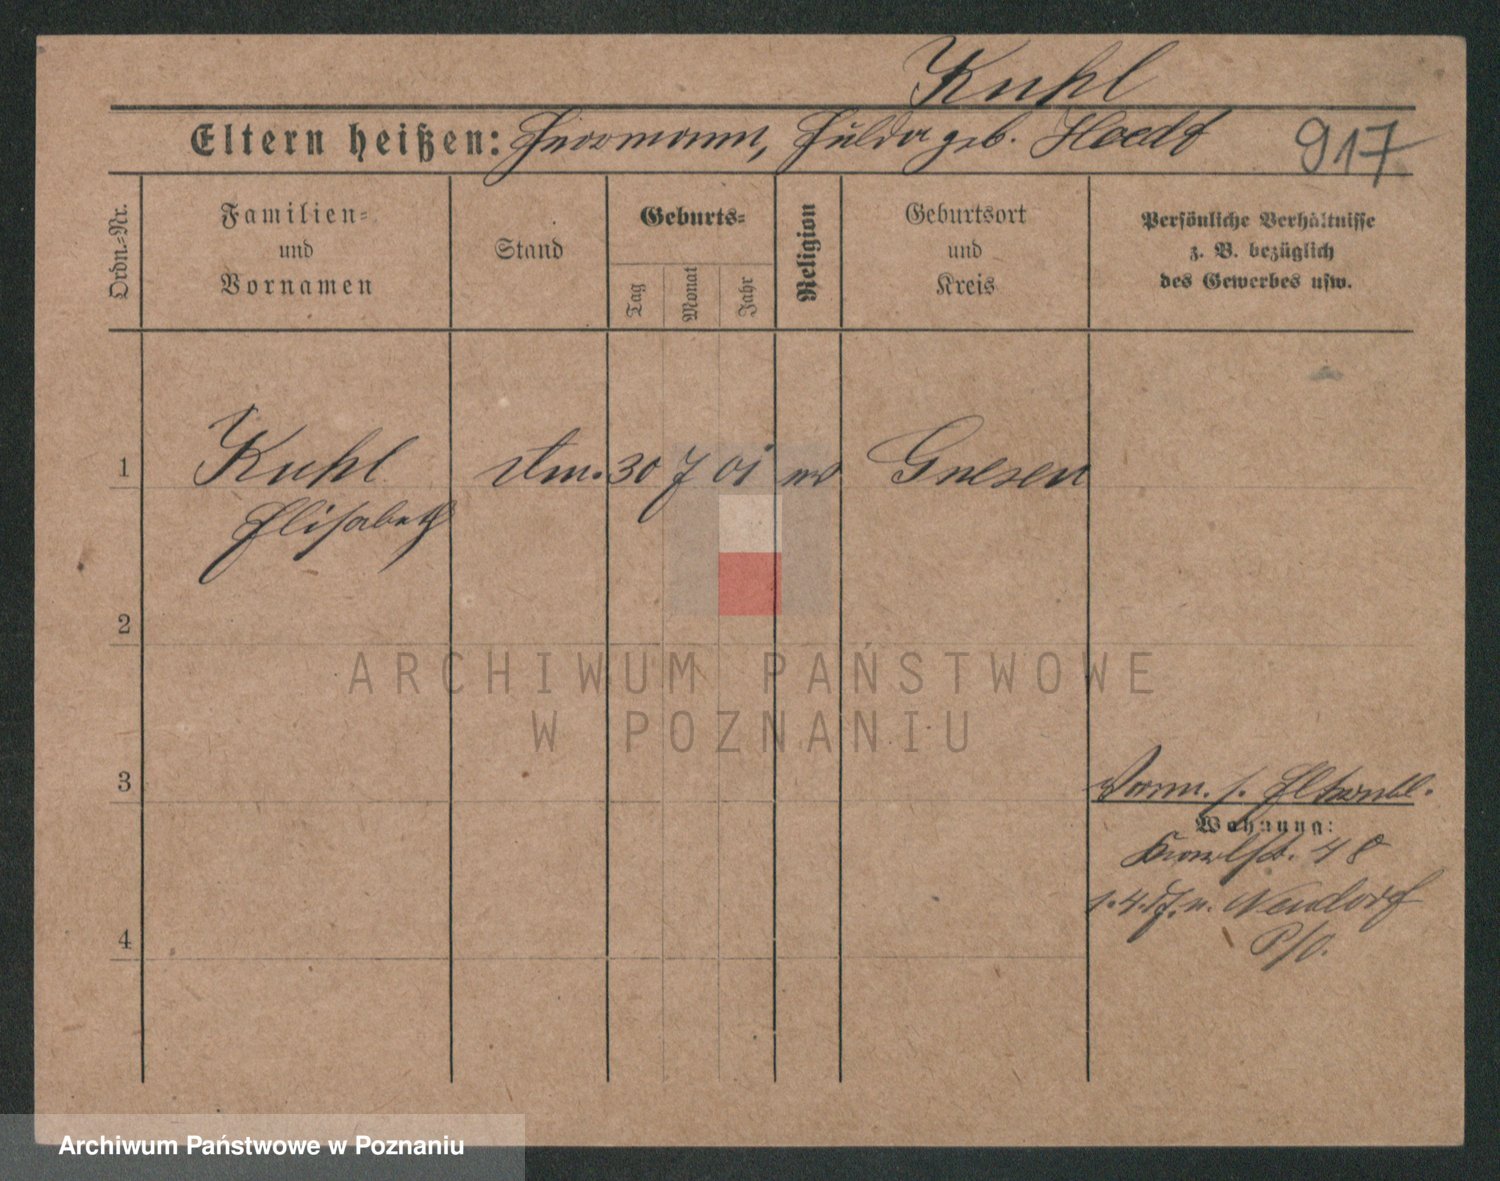 Kuhl
Eltern heißen: Herrmann, Hulda geb. Hoedt
917
Ordn.-Nr.
Familien-
und
Vornamen
Stand
Geburts-
Tag
Monat
Jahr
Religion
Geburtsort
und
Kreis
Persönliche Verhältnisse
z. B. bezüglich
des Gewerbes usw.
1
Kuhl
30 7 01
Gnesen
Elisabeth
2
ARCHIWUM PAŃSTWOWE
W POZNANIU
3
Wohnung:
48
Neudorf
4
Archiwum Państwowe w Poznaniu